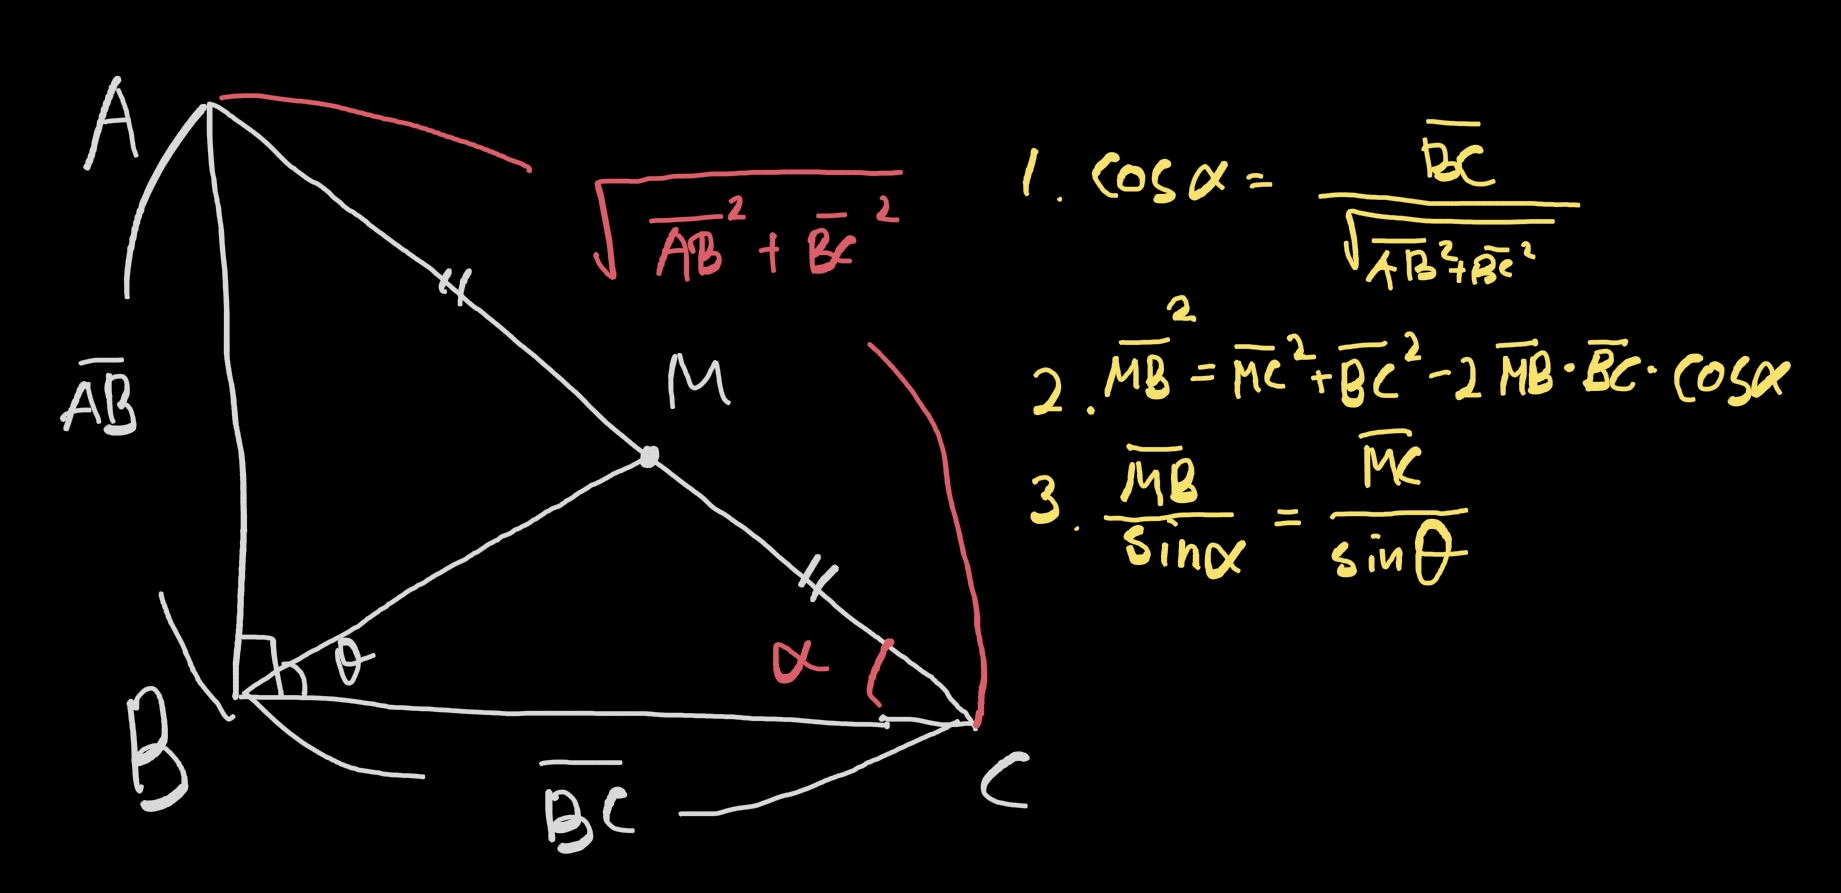 A
√(A̅B̅² + B̅C̅²)
M
A̅B̅
θ
α
B
B̅C̅
C
1. cosα = B̅C̅ / √(A̅B̅² + B̅C̅²)
2. M̅B̅² = M̅C̅² + B̅C̅² - 2 M̅B̅ · B̅C̅ · cosα
3. M̅B̅ / sinα = M̅C̅ / sinθ